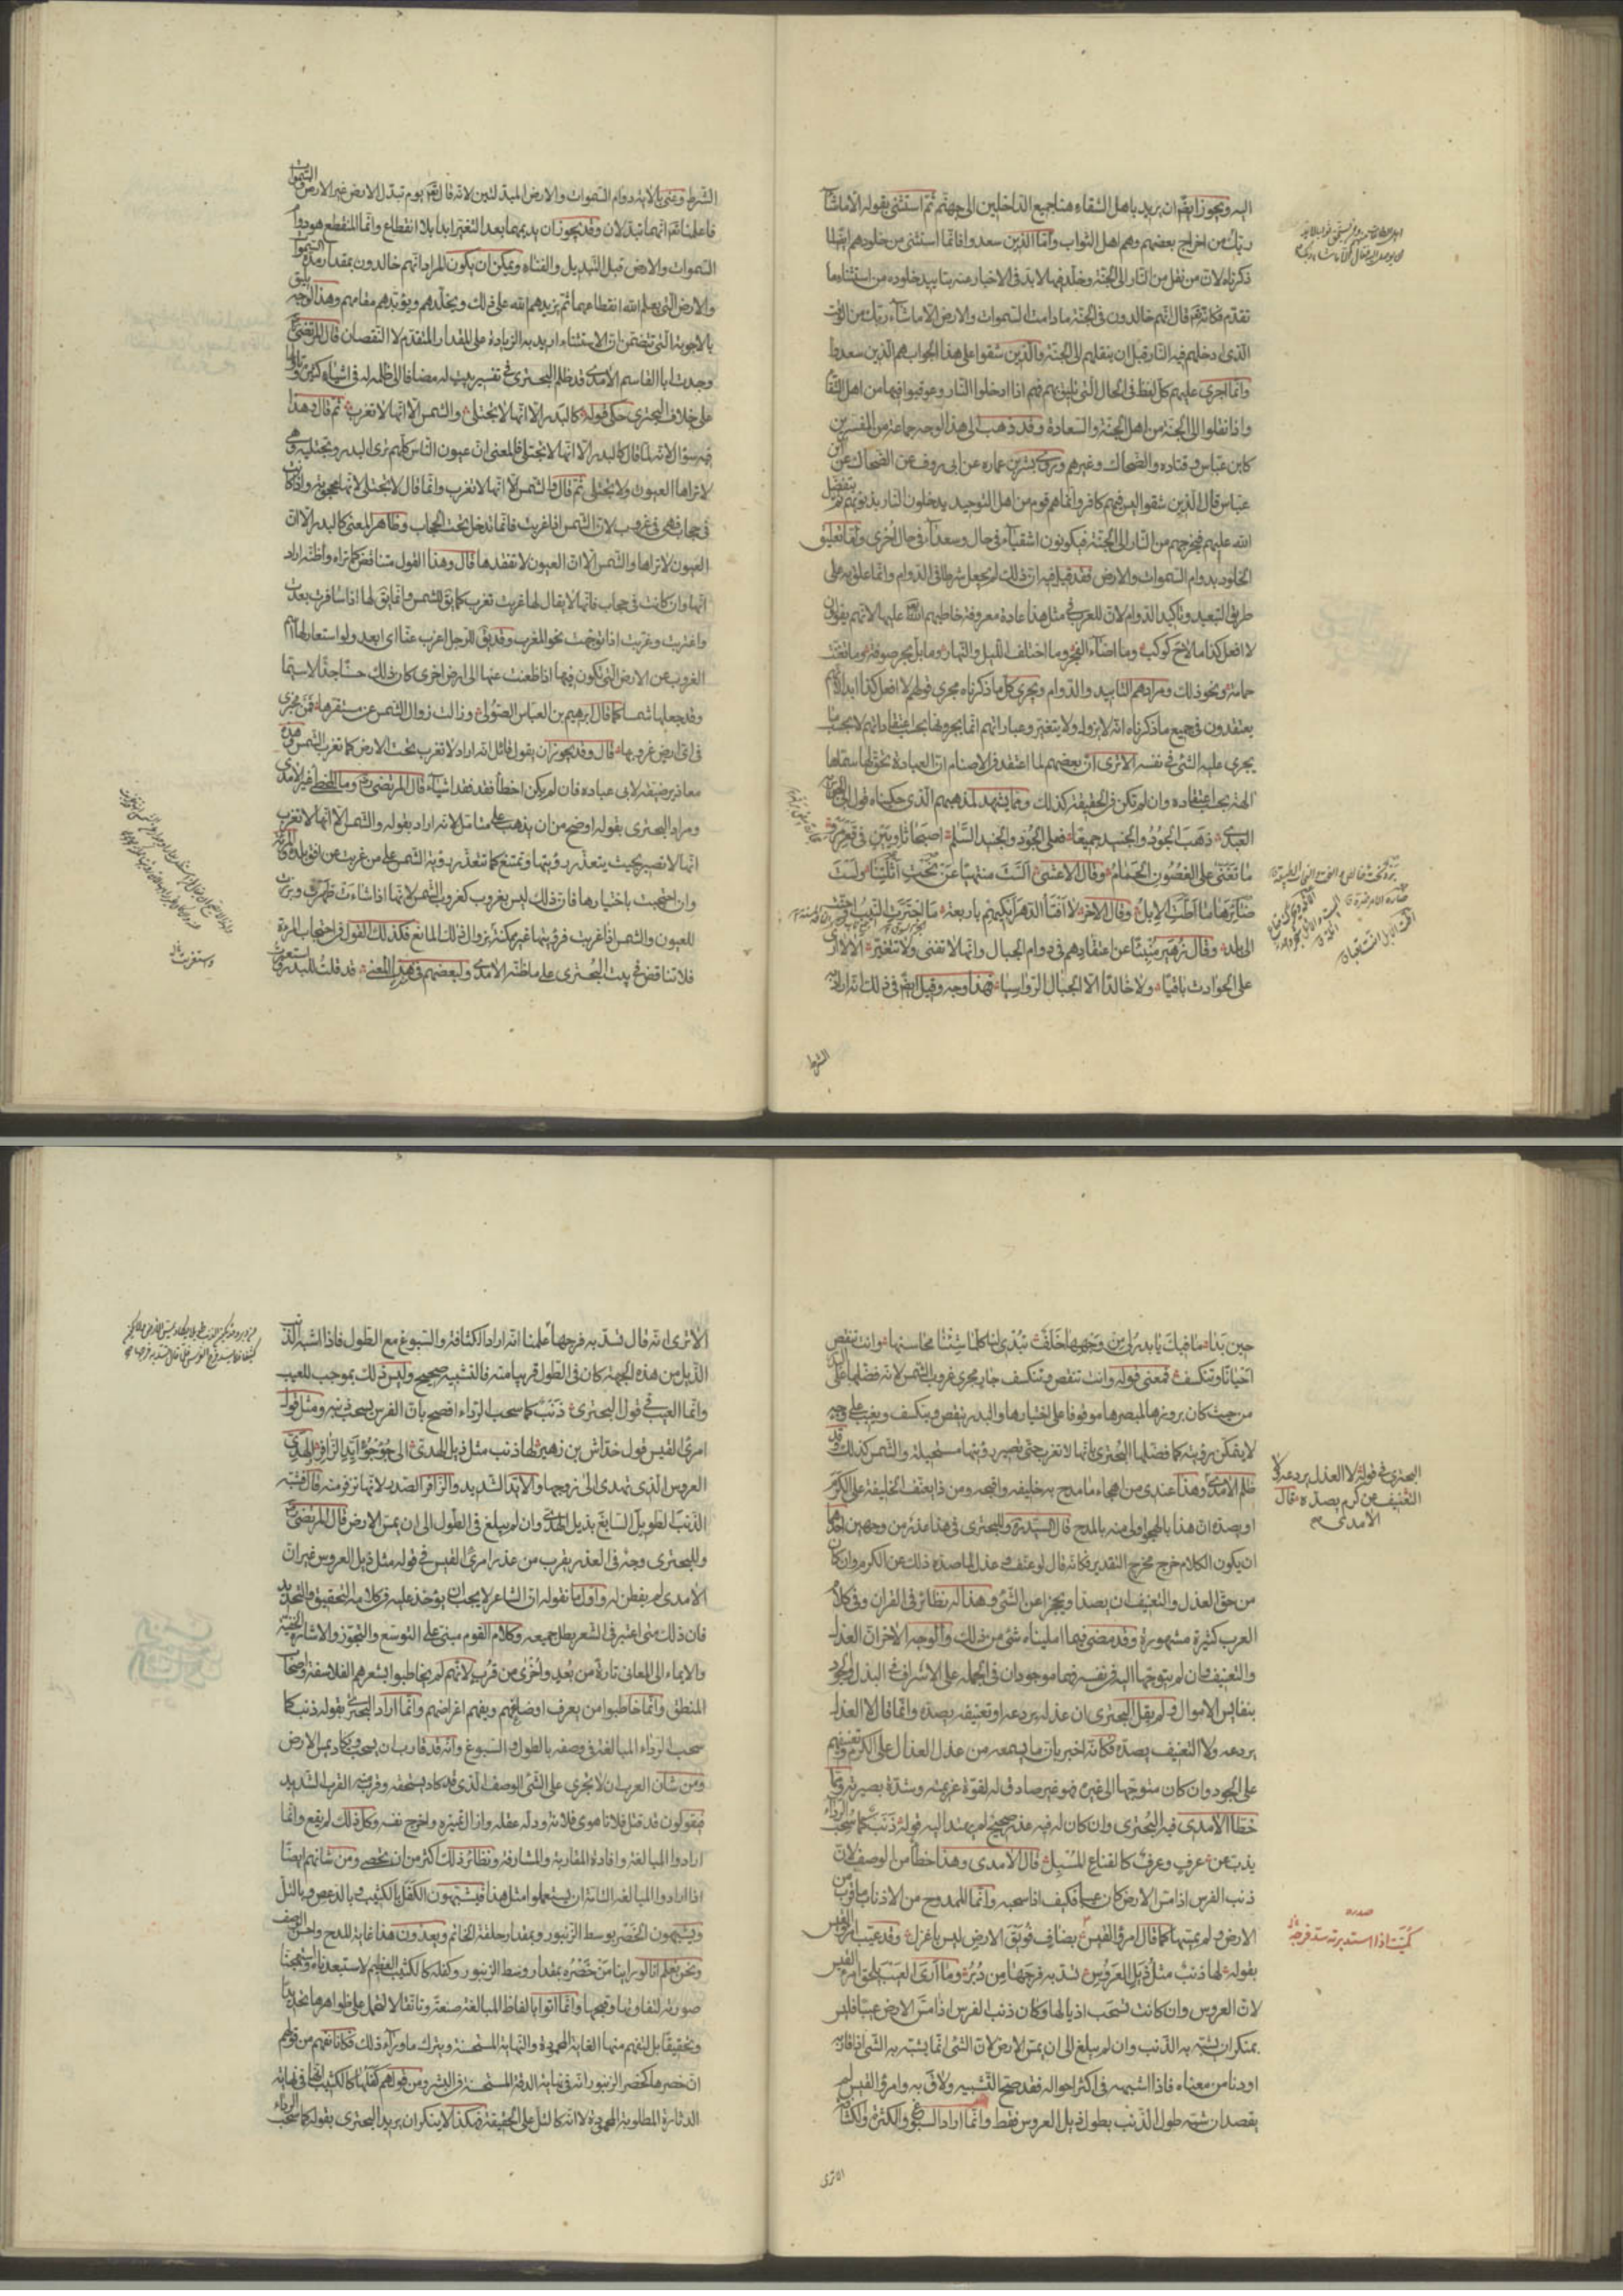 اليه ويجوز ايضا ان يريد باهل الشقاء هنا جميع الداخلين الى جهنم ثم استثنى بقوله الا ما شاء
ربك من اخراج بعضهم وهم اهل الثواب واما الذين سعدوا فانما استثنى من خلودهم ايضا لما
ذكرناه لان من نقل من النار الى الجنة وخلد فيها لا بد في الاخبار عنه بتابيد خلوده من استثناء ما
تقدم فكانه تعالى قال انهم خالدون في الجنة ما دامت السموات والارض الا ما شاء ربك من الوقت
الذي ادخلهم فيه النار قبل ان ينقلهم الى الجنة والذين شقوا على هذا الجواب هم الذين سعدوا
وانما اجرى عليهم كل لفظ في الحال التي تليق بهم فهم اذا ادخلوا النار وعوقبوا فيها من اهل الشقاء
واذا نقلوا الى الجنة من اهل الجنة والسعادة وقد ذهب الى هذا الوجه جماعة من المفسرين
كابن عباس وقتاده والضحاك وغيرهم وروى بشر بن عماره عن ابي روف عن الضحاك عن ابن
عباس قال الذين شقوا ليس فيهم كافر وانما هم قوم من اهل التوحيد يدخلون النار بذنوبهم ثم يتفضل
الله عليهم فيخرجهم من النار الى الجنة فيكونون اشقياء في حال وسعداء في حال اخرى واما تعليق
الخلود بدوام السموات والارض فقد قيل فيه ان ذلك لم يجعل شرطا في الدوام وانما علق به على
طريق التبعيد وتاكيد الدوام لان للعرب في مثل هذا عادة معروفة خاطبهم الله تعالى عليها لانهم يقولون
لا افعل كذا ما لاح كوكب وما اضاء الفجر وما اختلف الليل والنهار وما بل بحر صوفة وما تغنت
حمامة ونحو ذلك ومرادهم التابيد والدوام ويجري كل ما ذكرناه مجرى قولهم لا افعل كذا ابدا لانهم
يعتقدون في جميع ما ذكرناه انه لا يزول ولا يتغير وعباراتهم انما يخرجونها بحسب اعتقاداتهم لا بحسب ما
يجري عليه الشئ في نفسه الا ترى ان بعضهم لما اعتقد في الاصنام ان العبادة تحق لها سماها
الهة بحسب اعتقاده وان لم تكن في الحقيقة كذلك ومما يشهد لمذهبهم الذي حكيناه قول ابي الجويرية
العبدي ذهب الجود والجنيد جميعا فعلى الجود والجنيد السلم اصبحا ثاويين في قعر مرو
ما تغنى على الغصون الحمام وقال الاعشى الست منتهيا عن نحت اثلتنا ولست
ضائرها ما اطت الابل وقال الاخر لا افتأ الدهر ابكيهم باربعة ما اجترت النيب او حنت
الى بلد وقال زهير منبئا عن اعتقادهم في دوام الجبال وانها لا تفنى ولا تتغير الا لا ارى
على الحوادث باقيا ولا خالدا الا الجبال الرواسيا فهذا وجه وقيل ايضا في ذلك انه اراد به
الشرط
الشرط وعنى بالاية دوام السموات والارض المبدلتين لانه قال تعالى يوم تبدل الارض غير الارض والسموات
فاعلمنا تعالى انهما تبدلان وقد يجوز ان يديمهما بعد التغير ابدا بلا انقطاع وانما المنقطع هو دوام
السموات والارض قبل التبديل والفناء ويمكن ان يكون المراد انهم خالدون بمقدار مدة السموات
والارض التي يعلم الله انقطاعهما ثم يزيدهم الله على ذلك ويخلدهم ويؤبدهم مقامهم وهذا الوجه يليق
بالاجوبة التي تتضمن ان الاستثناء اريد به الزيادة على المقدار المتقدم لا النقصان قال المرتضى
وجدت ابا القاسم الآمدي قد ظلم البحتري في تفسير بيت له مضافا الى ظلمه له في اشياء كثيرة تاولها
على خلاف البحتري حكى قوله كالبدر الا انها لا تجتلى والشمس الا انها لا تغرب ثم قال وهذا
فيه سؤال لانه لما قال كالبدر الا انها لا تجتلى فالمعنى ان عيون الناس كلهم ترى البدر وتجتليه وهي
لا تراها العيون ولا تجتلى ثم قال والشمس الا انها لا تغرب وانما قال لا تجتلى لانها محجوبة واذا كانت
في حجاب فهي في غروب لان الشمس اذا غربت فانما تدخل تحت الحجاب وظاهر المعنى كالبدر الا ان
العيون لا تراها والشمس الا ان العيون لا تفقدها قال وهذا القول متناقض كما تراه واظنه اراد
انها وان كانت في حجاب فانها لا يقال لها غربت تغرب كما يق للشمس وانما يق لها اذا سافرت بعدت
واغتربت وغربت اذا توجهت نحو المغرب وقد يق للرجل اغرب عنا اي ابعد ولو استعار لها اسم
الغروب عن الارض التي تكون فيها اذا ظعنت عنها الى ارض اخرى كان ذلك حسنا جدا لا سيما
وقد جعلها شمسا كما قال ابرهيم بن العباس الصولي وزالت زوال الشمس عن مستقرها فمن مخبري
في اي ارض غروبها قال وقد يجوز ان يقول قائل انه اراد لا تغرب تحت الارض كما تغرب الشمس وهذه
معاذير ضيقة لابي عباده فان لم يكن اخطأ فقد فقد اشياء قال المرتضى وما المخطئ غير الآمدي
ومراد البحتري بقوله اوضح من ان يذهب على متامل لانه اراد بقوله والشمس الا انها لا تغرب
انها لا تصير بحيث يتعذر رؤيتها وتمتنع كما تتعذر رؤية الشمس على من غربت عن افق بلده والمراة
وان احتجبت باختيارها فان ذلك ليس بغروب كغروب الشمس لانها اذا شاءت ظهرت وبرزت
للعيون والشمس اذا غربت فرؤيتها غير ممكنة بزوال ذلك المانع فكذلك القول في احتجاب المراة
فلا تناقض في بيت البحتري على ما ظنه الآمدي ولبعضهم في هذا المعنى قد قلت للبدر واستعبرت
حين بدا ما فيك يا بدر لي من وجهها خلف تبدي لنا كلما شئنا محاسنها وانت تنقص
احيانا وتنكسف فمعنى قوله وانت تنقص وتنكسف جار مجرى غروب الشمس لانه فضلها على البدر
من حيث كان بروزها لمبصرها موقوفا على اختيارها والبدر ينقص وينكسف ويغيب على وجه
لا يتمكن من رؤيته كما فضلها البحتري بانها لا تغرب حتى تصير رؤيتها مستحيلة والشمس كذلك وقد
ظلم الآمدي وهذا عندي من اهجا ما مدح به خليفه واقبحه ومن ذا يعنف الخليفة على الكرم
او يصده ان هذا بالهجو اولى منه بالمدح قال السيد ره وللبحتري في هذا عذر من وجهين احدهما
ان يكون الكلام خرج مخرج التقدير فكانه قال لو عنف وعذل لما صده ذلك عن الكرم وان كان
من حق العذل والتعنيف ان يصدا ويحجزا عن الشئ وهذا له نظائر في القران وفي كلام
العرب كثيرة مشهورة وقد مضى فيما امليناه شئ من ذلك والوجه الاخر ان العذل
والتعنيف وان لم يتوجها اليه في نفسه فهما موجودان في الجملة على الاسراف في البذل والجود
بنفايس الاموال ولم يقل البحتري ان عذله يردعه او تعنيفه يصده وانما قال لا العذل
يردعه ولا التعنيف يصده فكانه اخبر بان ما يسمعه من عذل العذال على الكرم وتعنيفهم
على الجود وان كان متوجها الى غيره فهو غير صاد له لقوة عزيمته وشدة بصيرته ومما
خطأ الآمدي فيه البحتري وان كان له فيه عذر صحيح لم يهتد اليه قوله ذنب كما سحب الرداء
يذب عن عرف وعرف كالقناع المسبل قال الآمدي وهذا خطأ من الوصف لان
ذنب الفرس اذا مس الارض كان عيبا فكيف اذا سحبه وانما الممدوح من الاذناب ما قرب من
الارض ولم يمسها كما قال امرؤ القيس بضاف فويق الارض ليس باعزل وقد عيب امرؤ القيس
بقوله لها ذنب مثل ذيل العروس تسد به فرجها من دبر وما ارى العيب يلحق امرء القيس
لان العروس وان كانت تسحب اذيالها وكان ذنب الفرس اذا مس الارض عيبا فليس
بمنكر ان يشبه به الذنب وان لم يبلغ الى ان يمس الارض لان الشئ انما يشبه به الشئ اذا قاربه
او دنا من معناه فاذا اشبهه في اكثر احواله فقد صح التشبيه ولاق به وامرؤ القيس لم
يقصد ان يشبه طول الذنب بطول ذيل العروس فقط وانما اراد السبوغ والكثرة والكثافة
الا ترى
الا ترى انه قال تسد به فرجها علمنا انه اراد الكثافة والسبوغ مع الطول فاذا اشبه الذنب
الذيل من هذه الجهة كان في الطول قريبا منه فالتشبيه صحيح وليس ذلك بموجب للعيب
وانما العيب في قول البحتري ذنب كما سحب الرداء افصح بان الفرس يسحب ذنبه ومثل قول
امرئ القيس قول خداش بن زهير لها ذنب مثل ذيل الهدي الى جؤجؤ ايد الزافر الهدي
العروس التي تهدى الى زوجها والايد الشديد والزافر الصدر لانها تزفر منه قال فشبه
الذنب الطويل السابغ بذيل الهدي وان لم يبلغ في الطول الى ان يمس الارض قال المرتضى
وللبحتري وجه في العذر يقرب من عذر امرئ القيس في قوله مثل ذيل العروس غير ان
الآمدي لم يفطن له واول ما نقوله ان الشاعر لا يجب ان يؤخذ عليه في كلامه التحقيق والتحديد
فان ذلك متى اعتبر في الشعر بطل جميعه وكلام القوم مبني على التوسع والتجوز والاشارة الخفية
والايماء الى المعاني تارة من بعد واخرى من قرب لانهم لم يخاطبوا بشعرهم الفلاسفة واصحاب
المنطق وانما خاطبوا من يعرف اوضاعهم ويفهم اغراضهم وانما اراد البحتري بقوله ذنب كما
سحب الرداء المبالغة في وصفه بالطول والسبوغ وانه قد قارب ان يسحب وكاد يمس الارض
ومن شان العرب ان تجري على الشئ الوصف الذي قد كاد يستحقه وقرب منه القرب الشديد
فيقولون قد قتل فلانا هوى فلانة ودله عقله وازال تمييزه واخرج نفسه وكل ذلك لم يقع وانما
ارادوا المبالغة وافادة المقاربة والمشارفة ونظائر ذلك اكثر من ان تحصى ومن شانهم ايضا
اذا ارادوا المبالغة التامة ان يستعملوا مثل هذا فيشبهون الكفل بالكثيب وبالدعص وبالتل
ويشبهون الخصر بوسط الزنبور وبمقدار حلقة الخاتم ويعدون هذا غاية المدح واحسن الوصف
ونحن نعلم انا لو راينا من خصره بمقدار وسط الزنبور وكفله كالكثيب العظيم لاستبعدناه واستهجنا
صورته لتفاوتها وقبحها وانما اتوا بالفاظ المبالغة صنعة وتانقا لا لتحمل على ظواهرها تحديدا
وتحقيقا بل ليفهم منها الغاية المحمودة والنهاية المستحسنة ويترك ما وراء ذلك فكانا نفهم من قولهم
ان خصرها كخصر الزنبور انه في نهاية الدقة المستحسنة في البشر ومن قولهم كفلها كالكثيب انه في نهاية
الدثارة المطلوبة المحمودة لا انه كالتل على الحقيقة فهكذا لا ينكر ان يريد البحتري بقوله كما سحب الرداء
البحتري في قوله لا العذل يردعه ولا
التعنيف عن كرم يصده قال
الآمدي
صدره
كميت اذا استدبرته سد فرجه